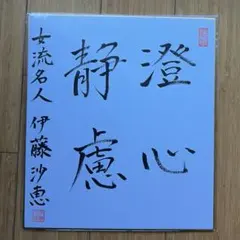 澄心
静慮
女流名人 伊藤沙恵